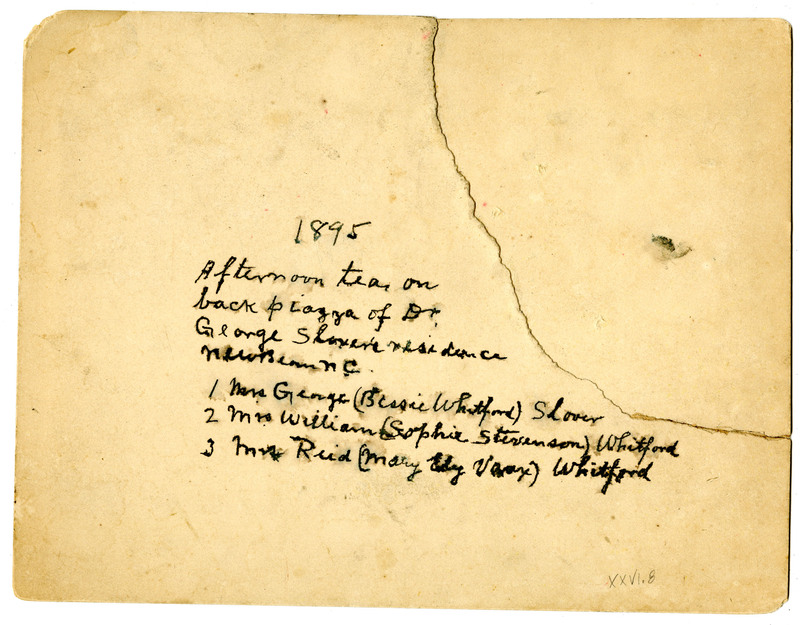 1895
Afternoon tea, on
back piazza of Dr.
George Slover's residence
New Bern N C.
1 Mrs George (Bessie Whitford) Slover
2 Mrs William (Sophie Stevenson) Whitford
3 Mrs Reid (Mary) Whitford
XXVI.8